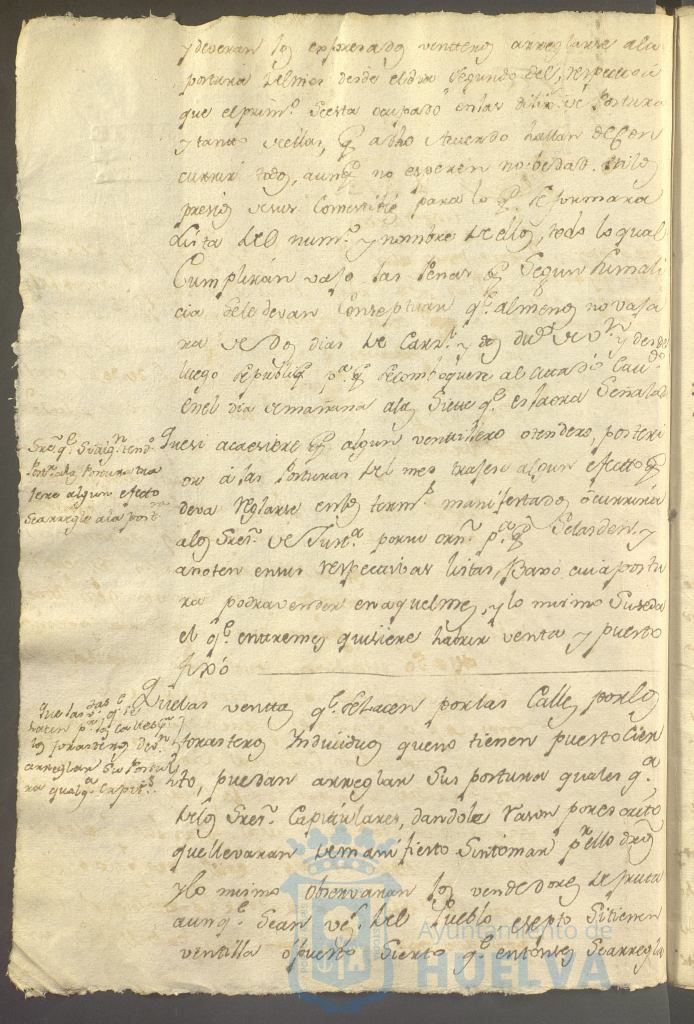 y deveran los expresados venteros arreglarse ala
postura del mes desde el dia segundo del, respecto a
que el primº. se esta ocupado en las dilixs. de Postura
y tanto de ellas, qe. a dho Acuerdo hallan de con
currir todos, aunqe. no esperen nobedad. en los
presios de sus Comestibs. para lo qe. se formara
Lista del numº. y nombre de ellos, todo lo qual
Cumplirán vajo las Penas qe. Segun su mali
cia se le devan Conseptuar qe. al menos no vaja
ra de dos dias de Carzl. y dos duds. de vn. y desde
luego se publiqe. pa. qe. se comboquen al citado Cavdo.
en el dia de mañana alas Siete qe. es la ora Señalada
Sres. qe. Si algn. tendo.
postr. ala Postura tra
jere algun efecto
se arregle ala postra.
Que si acaesiere qe. algun ventillero o tendero, posteri
or á las Posturas del mes trajese algun efecto qe.
deva reglarse en los termos. manifestados ocurrirá
alos Sres. de Junta. por su orn. pa. qe. se las den, y
anoten en sus respectivas listas, Baxo cuia postu
ra podra vender en aquel mes, y lo mismo Suseda
el qe. entre mes quisiere habrir venta y puesto
fixo
Que las vtas. qe. se
hacen pr. las calles pr.
los forasteros devn.
arreglar su Postu
ra qualqa. Capitr.
Que las ventas qe. se hacen por las Calles por los
forasteros Individuos que no tienen puesto Cier
to, puedan arreglar Sus postura qualesqa.
de los Sres. Capitulares, dandole rason por escrito
que llevaran de manifiesto Sin tomar pr. ello dros
y lo mismo observaran los vendedores de fruta
aunqe. Sean vs. del Pueblo, esepto Si tienen
ventilla ó puesto Sierto qe. entonses Se arregla
Ayuntamiento de
HUELVA